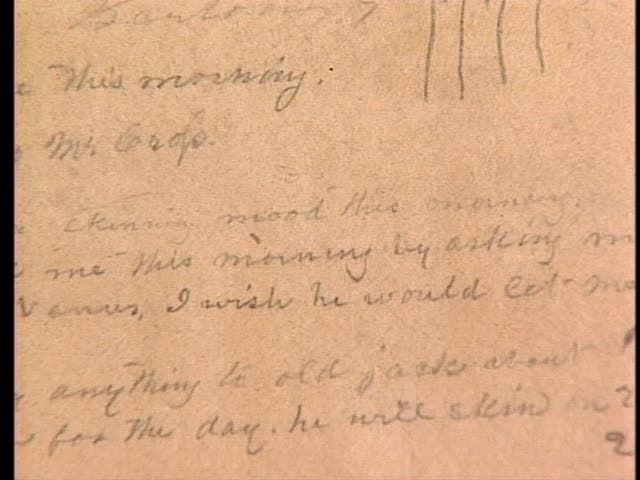 this morning.
Mr
skinning mood this morning.
me this morning by asking
I wish he would let me
anything to old jack about
for the day. he will skin